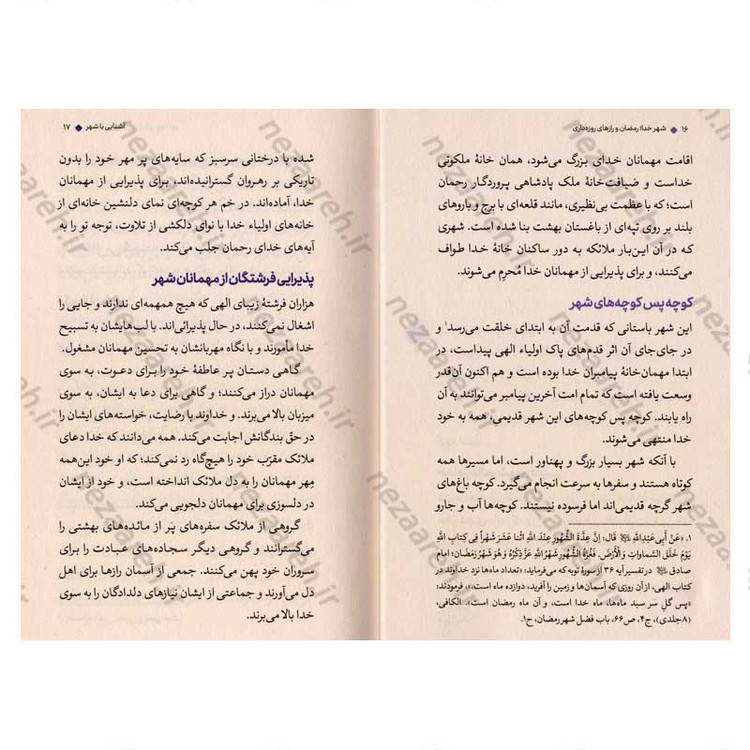 ۱۶ ◆ شهر خدا؛ رمضان و رازهای روزه‌داری
اقامت مهمانان خدای بزرگ می‌شود، همان خانهٔ ملکوتی
خداست و ضیافت‌خانهٔ ملک پادشاهی پروردگار رحمان
است؛ که با عظمت بی‌نظیری، مانند قلعه‌ای با برج و باروهای
بلند بر روی تپه‌ای از باغستان بهشت بنا شده است. شهری
که در آن این‌بار ملائکه به دور ساکنان خانهٔ خدا طواف
می‌کنند، و برای پذیرایی از مهمانان خدا مُحرِم می‌شوند.
کوچه پس کوچه‌های شهر
این شهر باستانی که قدمت آن به ابتدای خلقت می‌رسد۱ و
در جای‌جای آن اثر قدم‌های پاک اولیاء الهی پیداست، در
ابتدا مهمان‌خانهٔ پیامبران خدا بوده است و هم اکنون آن‌قدر
وسعت یافته است که تمام امت آخرین پیامبر می‌توانند به آن
راه یابند. کوچه پس کوچه‌های این شهر قدیمی، همه به خود
خدا منتهی می‌شوند.
با آنکه شهر بسیار بزرگ و پهناور است، اما مسیرها همه
کوتاه هستند و سفرها به سرعت انجام می‌گیرد. کوچه باغ‌های
شهر گرچه قدیمی‌اند اما فرسوده نیستند. کوچه‌ها آب و جارو
۱. «عَنْ أَبِي عَبْدِاللَّهِ ﷺ قَالَ: إِنَّ عِدَّةَ الشُّهُورِ عِنْدَ اللَّهِ اثْنَا عَشَرَ شَهْراً فِي كِتَابِ اللَّهِ
يَوْمَ خَلَقَ السَّمَاوَاتِ وَالْأَرْضَ، فَغُرَّةُ الشُّهُورِ شَهْرُ اللَّهِ عَزَّ ذِكْرُهُ وَ هُوَ شَهْرُ رَمَضَانَ؛ امام
صادق ﷺ در تفسیر آیه ۳۶ از سورهٔ توبه که می‌فرماید: «تعداد ماه‌ها نزد خداوند در
کتاب الهی، از آن روزی که آسمان‌ها و زمین را آفرید، دوازده ماه است»، فرمودند:
«پس گلِ سَر سبد ماه‌ها، ماه خدا است، و آن ماه رمضان است». الکافی،
(۸جلدی)، ج۴، ص۶۶، باب فضل شهر رمضان، ح۱.
آشنایی با شهر ◆ ۱۷
شده با درختانی سرسبز که سایه‌های پر مهر خود را بدون
تاریکی بر رهروان گسترانیده‌اند، برای پذیرایی از مهمانان
خدا، آماده‌اند. در خم هر کوچه‌ای نمای دلنشین خانه‌ای از
خانه‌های اولیاء خدا با نوای دلکشی از تلاوت، توجه تو را به
آیه‌های خدای رحمان جلب می‌کند.
پذیرایی فرشتگان از مهمانان شهر
هزاران فرشتهٔ زیبای الهی که هیچ همهمه‌ای ندارند و جایی را
اشغال نمی‌کنند، در حال پذیرائی‌اند. با لب‌هایشان به تسبیح
خدا مأمورند و با نگاه مهربانشان به تحسین مهمانان مشغول.
گاهی دستان پر عاطفهٔ خود را برای دعوت، به سوی
مهمانان دراز می‌کنند؛ و گاهی برای دعا به ایشان، به سوی
میزبان بالا می‌برند. و خداوند با رضایت، خواسته‌های ایشان را
در حقّ بندگانش اجابت می‌کند. همه می‌دانند که خدا دعای
ملائک مقرّب خود را هیچ‌گاه رد نمی‌کند؛ که او خود این‌همه
مِهر مهمانان را به دل ملائک انداخته است، و خود از ایشان
در دلسوزی برای مهمانان دلجویی می‌کند.
گروهی از ملائک سفره‌های پَر از مائده‌های بهشتی را
می‌گسترانند و گروهی دیگر سجاده‌های عبادت را به سوی
سروران خود پهن می‌کنند. جمعی از آسمان رازها برای اهل
دَل می‌آورند و جماعتی از ایشان نیازهای دلدادگان را به سوی
خدا بالا می‌برند.
nezaareh.ir